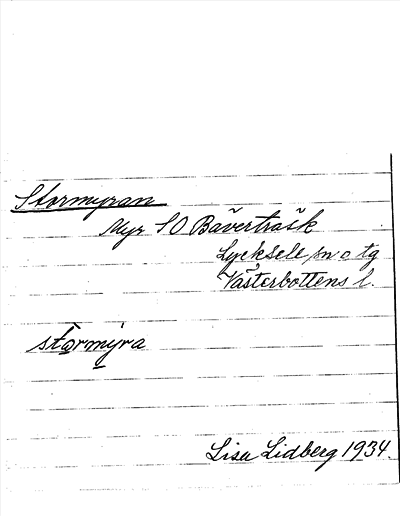 Stormyran
Myr SO Bäverträsk
Lycksele sn o tg
Västerbottens l.
stormyra
Lisa Lidberg 1934.